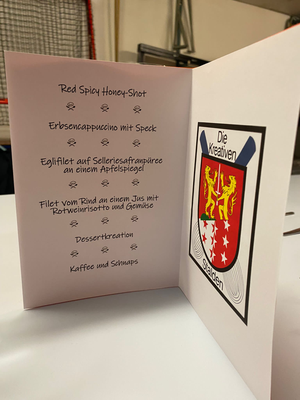 Red Spicy Honey-Shot
Erbsencappuccino mit Speck
Eglifilet auf Selleriesafranpüree
an einem Apfelspiegel
Filet vom Rind an einem Jus mit
Rotweinrisotto und Gemüse
Dessertkreation
Kaffee und Schnaps
Die
Kreativen
Stalden